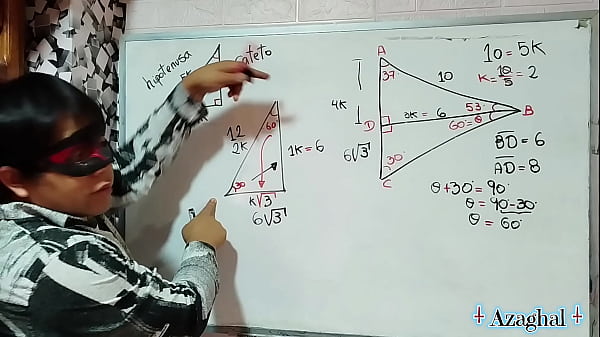 hipotenusa
cateto
5k
60
12
2K
1K = 6
30
K√3
6√3
A
37
10
4K
D
3K = 6
53
B
60 = θ
6√3
30°
C
10 = 5K
K = 10/5 = 2
BD = 6
AD = 8
θ+30° = 90°
θ = 90-30°
θ = 60°
Azaghal